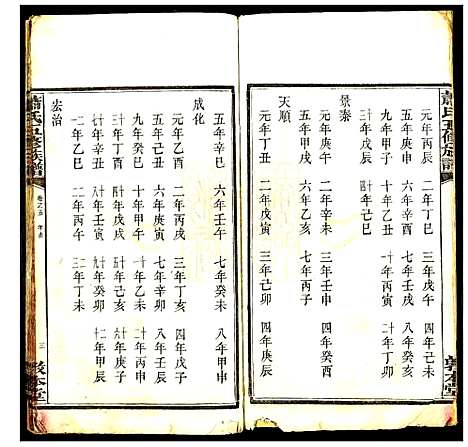 蕭氏五修族譜
敦本堂
元年丙辰 二年丁巳 三年戊午 四年己未
五年庚申 六年辛酉 七年壬戌 八年癸亥
九年甲子 十年乙丑 十一年丙寅 十二年丁卯
十三年戊辰 十四年己巳
景泰
元年庚午 二年辛未 三年壬申 四年癸酉
五年甲戌 六年乙亥 七年丙子
天順
元年丁丑 二年戊寅 三年己卯 四年庚辰
五年辛巳 六年壬午 七年癸未 八年甲申
成化
元年乙酉 二年丙戌 三年丁亥 四年戊子
五年己丑 六年庚寅 七年辛卯 八年壬辰
九年癸巳 十年甲午 十一年乙未 十二年丙申
十三年丁酉 十四年戊戌 十五年己亥 十六年庚子
十七年辛丑 十八年壬寅 十九年癸卯 二十年甲辰
二一年乙巳 二二年丙午 二三年丁未
宏治
蕭氏五修族譜
三
敦本堂